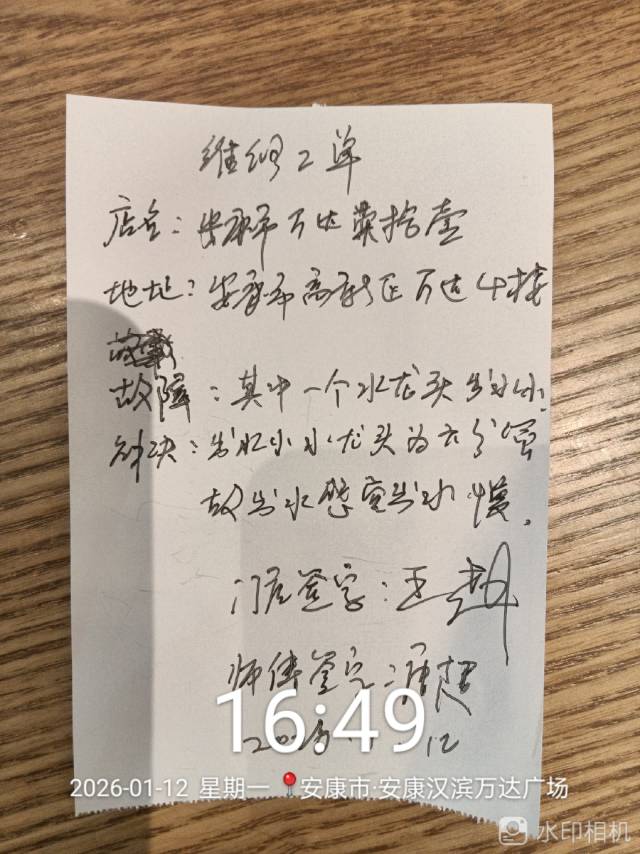 维修工单
店名：安康市万达
地址：安康市高新区万达4栋
故障：其中一个水龙头出水小.
解决：出水小水龙头为六分管
故出水感觉出水慢.
门店签字：王
师傅签字：
16:49
12
2026-01-12 星期一 安康市·安康汉滨万达广场
水印相机